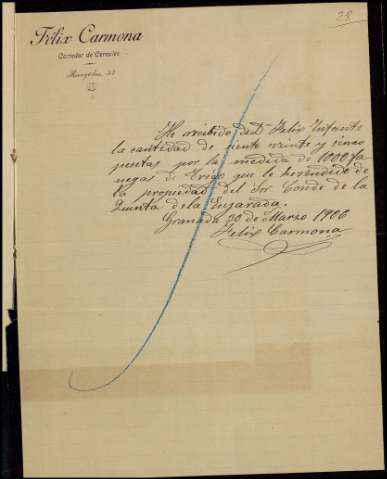 28
Félix Carmona
Corredor de Cereales
He recibido de D Felix Infante
la cantidad de ciento veinte y cinco
pesetas por la medida de 1000 fa
negas de Trigo que he bendido de
la propiedad del Sor Conde de la
Quinta de la Enjarada.
Granada 30 de Marzo 1906
Felix Carmona